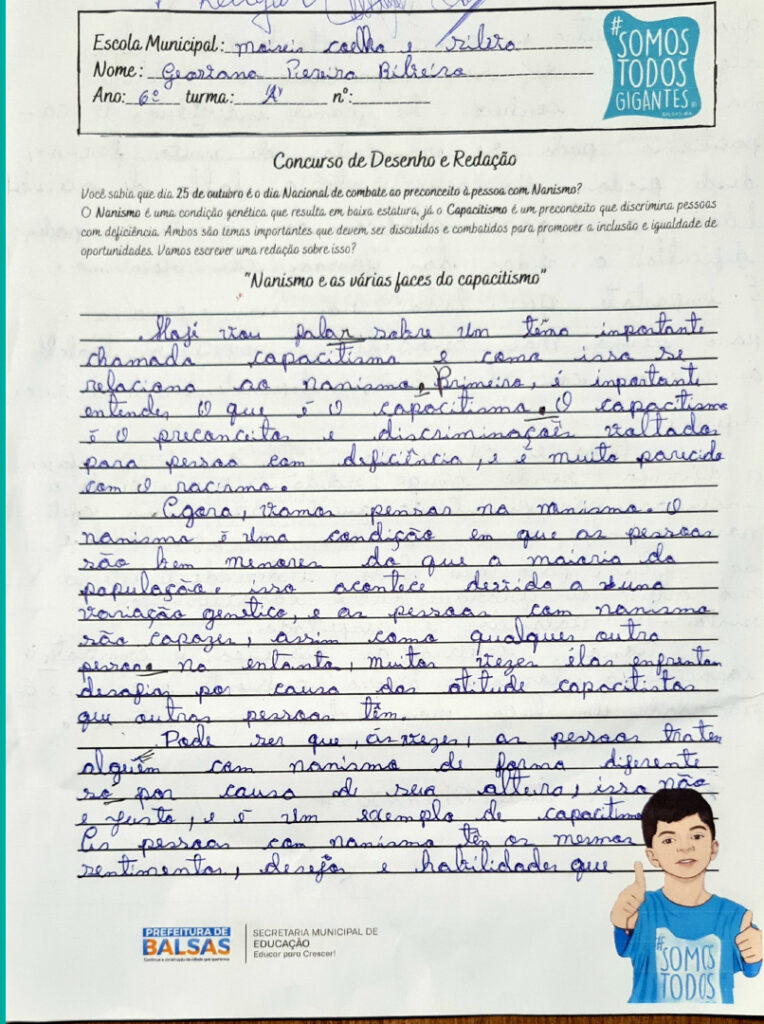 Escola Municipal: Moisés Coelho e Silva
Nome: Geovana Pereira Ribeiro
Ano: 6º turma: "A" nº:
#SOMOS
TODOS
GIGANTES
BALSAS-MA
Concurso de Desenho e Redação
Você sabia que dia 25 de outubro é o dia Nacional de combate ao preconceito à pessoa com Nanismo?
O Nanismo é uma condição genética que resulta em baixa estatura, já o Capacitismo é um preconceito que discrimina pessoas
com deficiência. Ambos são temas importantes que devem ser discutidos e combatidos para promover a inclusão e igualdade de
oportunidades. Vamos escrever uma redação sobre isso?
"Nanismo e as várias faces do capacitismo"
Hoje vou falar sobre um têma importante
chamada capacitismo e como isso se
relaciona ao nanismo. Primeiro, é importante
entender o que é o capacitismo. O capacitismo
é o preconceito e discriminação voltados
para pessoa com deficiência, e é muito parecido
com o racismo.
Agora, vamos pensar no nanismo. O
nanismo é uma condição em que as pessoas
são bem menores do que a maioria da
população, isso acontece devido a uma
variação genética, e as pessoas com nanismo
são capazes, assim como qualquer outra
pessoa. No entanto, muitas vezes elas enfrentam
desafios por causa das atitude capacitistas
que outras pessoas têm.
Pode ser que, às vezes, as pessoas tratem
alguém com nanismo de forma diferente
só por causa de sua altura, isso não
é justo, e é um exemplo de capacitismo
As pessoas com nanismo têm os mesmos
sentimentos, desejos e habilidades que
PREFEITURA DE
BALSAS
SECRETARIA MUNICIPAL DE
EDUCAÇÃO
Educar para Crescer!
#SOMOS
TODOS